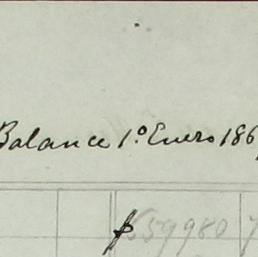 Balance 1º Enero 186
59980 7